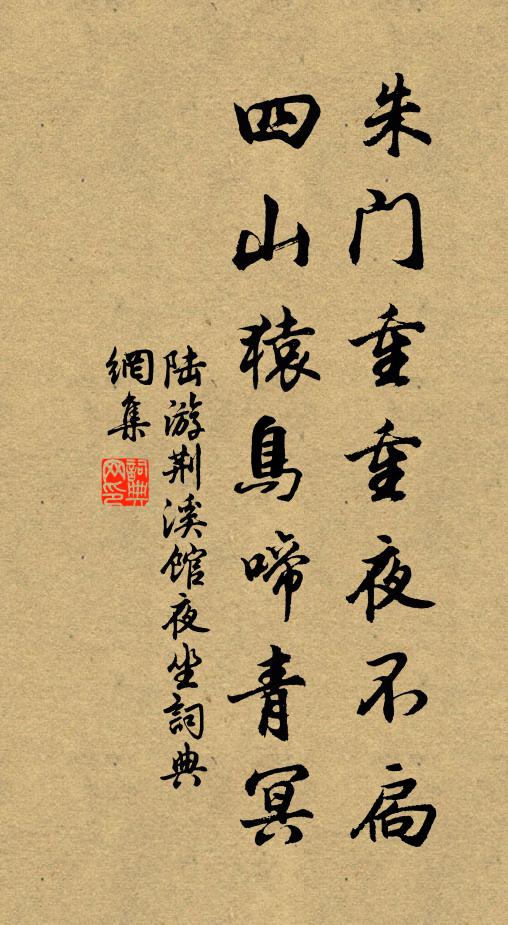 朱门重重夜不扃
四山猿鳥啼青冥
陆游荆溪馆夜坐詞典
網集
詞典網印